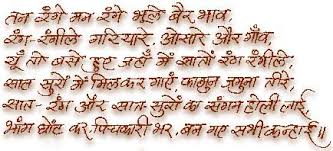 तन रंगे मन रंगे भूले बैर भाव,
रंग-रंगीले गलियारे, ओसारे और गाँव
यूँ तो बसे हुए जहाँ में सातों रंग रंगीले,
सात सुरों में मिल कर गाएं, फागुन जमुना तीरे,
सात-रंग और सात सुरों का संगम होली लाई
भांग घोंट कर, पिचकारी भर, बन गए सभी कन्हाई॥